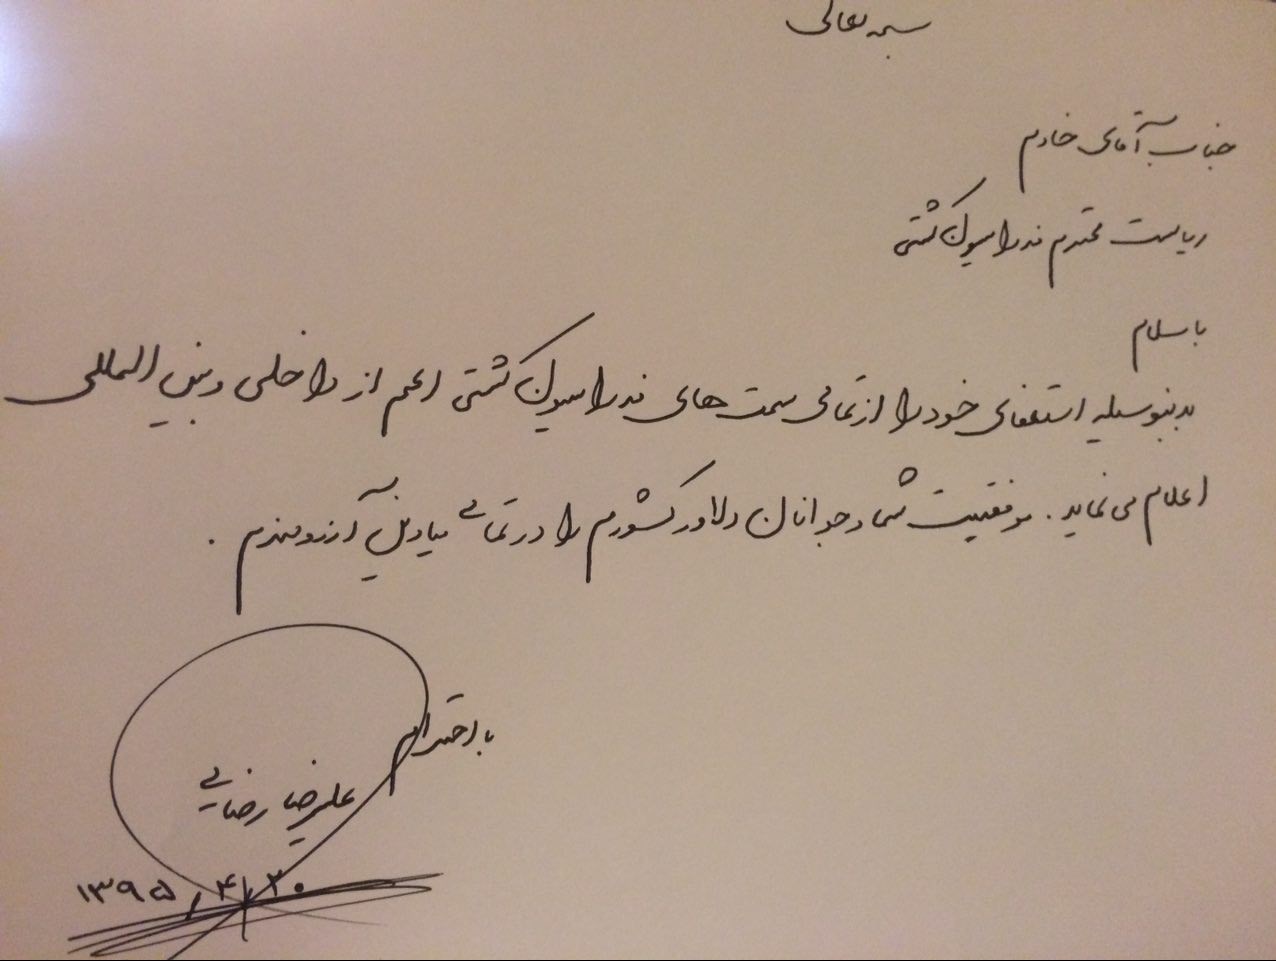 بسمه تعالی
جناب آقای خادم
ریاست محترم فدراسیون کشتی
با سلام
بدینوسیله استعفای خود را از تمامی سمت های فدراسیون کشتی اعم از داخلی و بین المللی
اعلام می نماید. موفقیت شما و جوانان دلاور کشورم را در تمامی میادین آرزومندم.
با احترام
علیرضا رضایی
۱۳۹۵/۴/۲۰